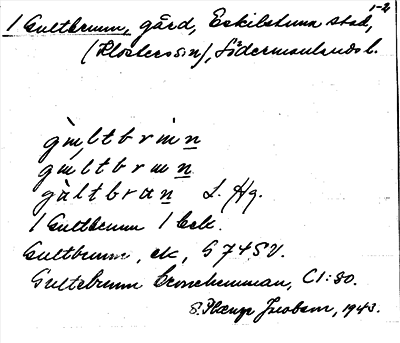 1-2
1 Gultbrunn, gård, Eskilstuna stad,
(Klosters sn), Södermanlands l.
gùltbrùnn
gùltbrunn
gùltbran L. Hg.
1 Gultbrunn 1 Eck.
Gultbrunn, ek, G 74 SV.
Gultebrunn Cronehemman, C1:30.
S. Plænge Jacobson, 1943.